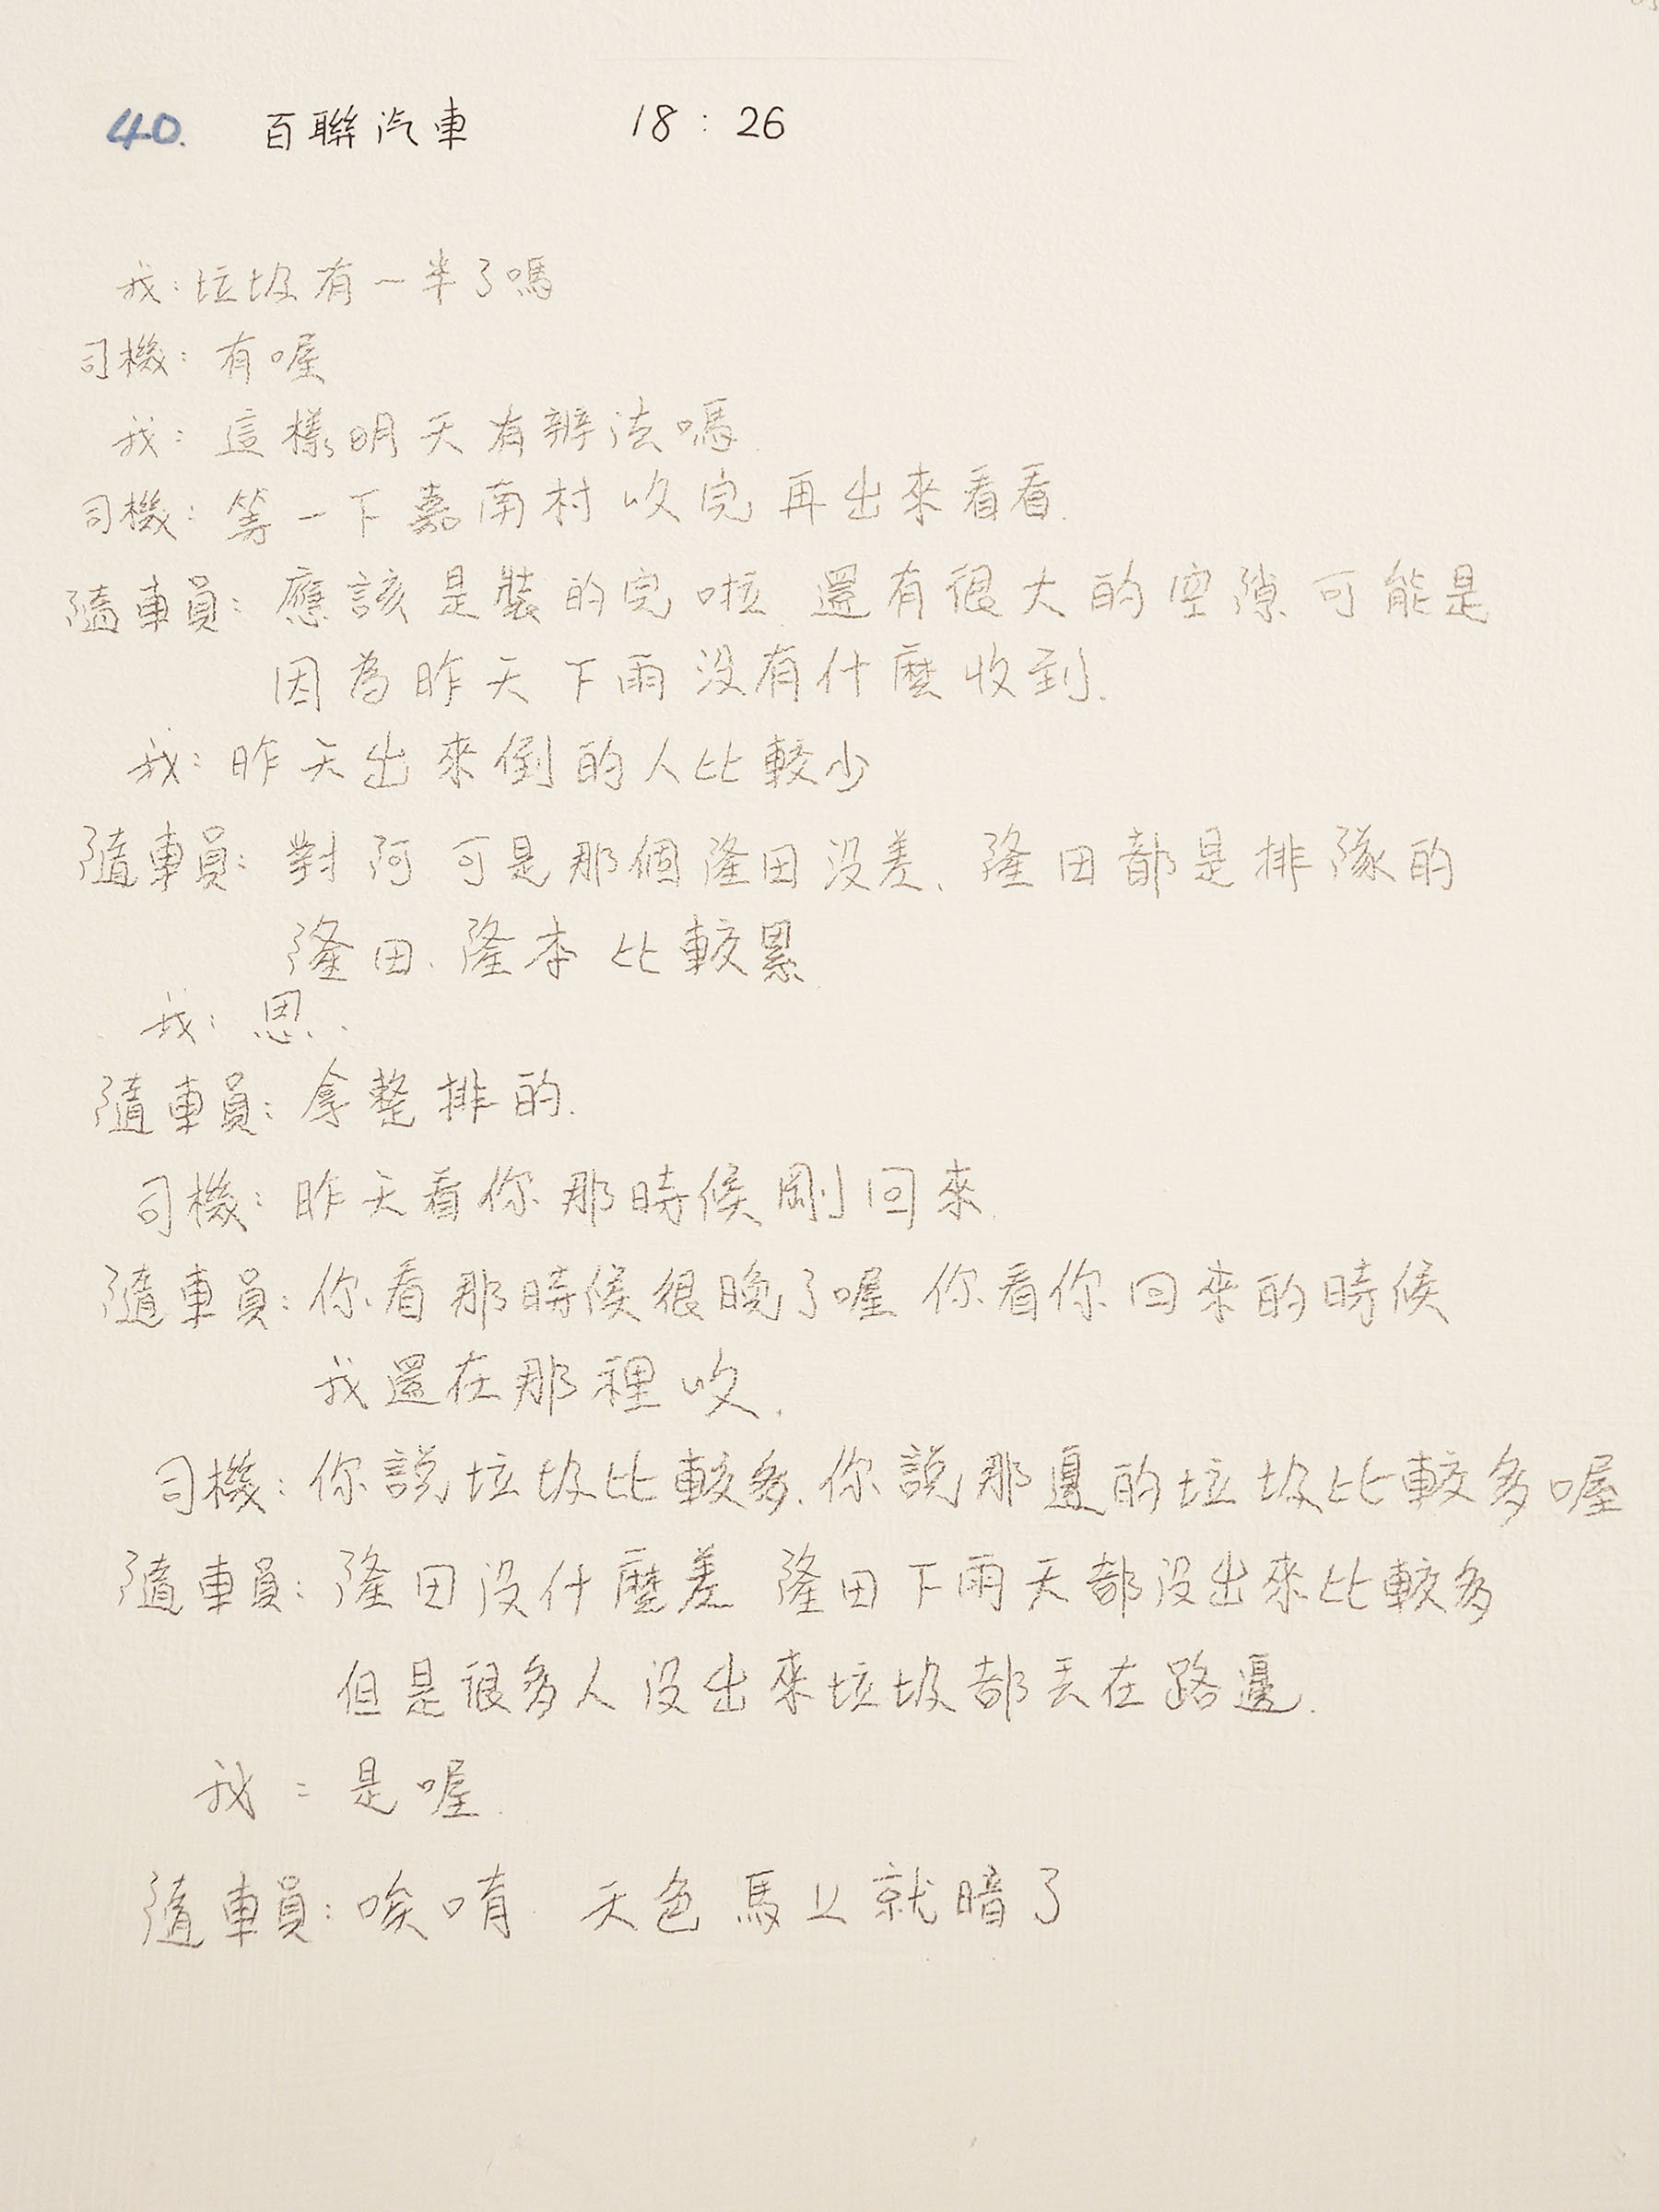 40. 百聯汽車 18:26
我:垃圾有一半了嗎
司機:有喔
我:這樣明天有辦法嗎.
司機:等一下嘉南村收完再出來看看.
隨車員:應該是裝的完啦.還有很大的空隙可能是
因為昨天下雨沒有什麼收到.
我:昨天出來倒的人比較少
隨車員:對阿可是那個隆田沒差、隆田都是排隊的
隆田、隆本比較累
我:恩.
隨車員:拿整排的.
司機:昨天看你那時候剛回來.
隨車員:你看那時候很晚了喔 你看你回來的時候
我還在那裡收.
司機:你說垃圾比較多.你說那邊的垃圾比較多喔
隨車員:隆田沒什麼差 隆田下雨天都沒出來比較多
但是很多人沒出來垃圾都丟在路邊.
我:是喔.
隨車員:唉唷.天色馬上就暗了